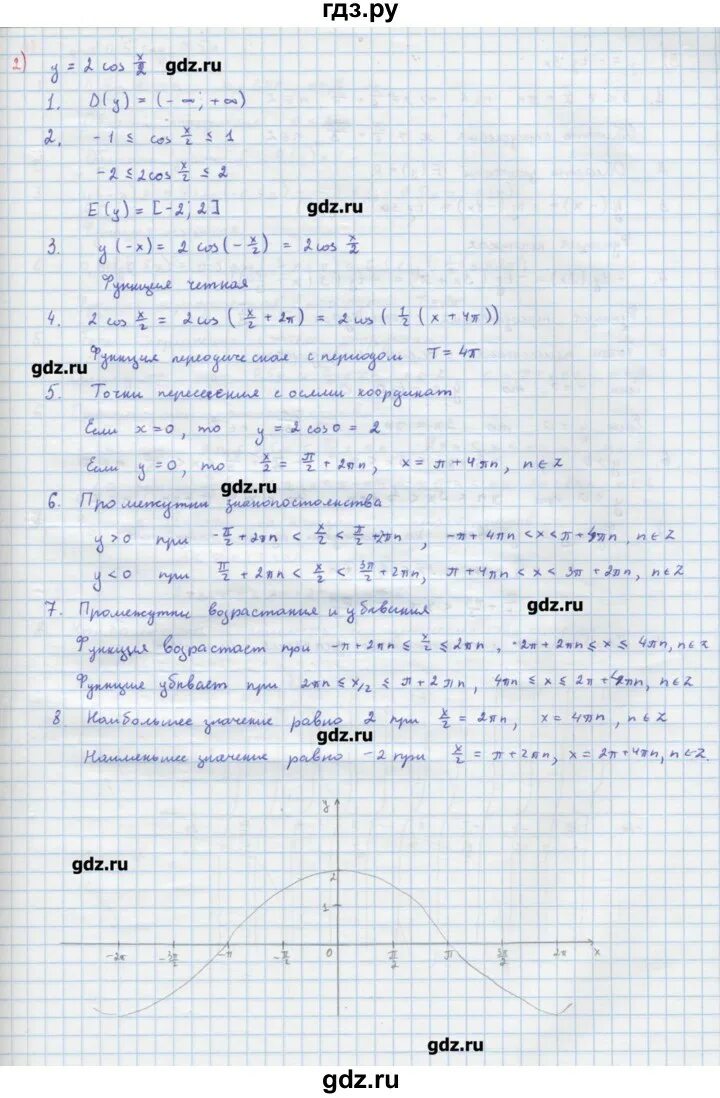 гдз.ру
2) y = 2 cos x/2 gdz.ru
1. D(y) = (-∞; +∞)
2. -1 ≤ cos x/2 ≤ 1
-2 ≤ 2cos x/2 ≤ 2
E(y) = [-2; 2] gdz.ru
3. y(-x) = 2 cos(-x/2) = 2cos x/2
Функция четная
4. 2 cos x/2 = 2cos(x/2 + 2π) = 2cos(1/2(x + 4π))
Функция переодическая с периодом T = 4π
gdz.ru
5. Точки пересения с осями координат
Если x = 0, то y = 2 cos 0 = 2
Если y = 0, то x/2 = π/2 + 2πn, x = π + 4πn, n ∈ Z
gdz.ru
6. Промежутки знакопостоянства
y > 0 при -π/2 + 2πn < x/2 < π/2 + 2πn, -π + 4πn < x < π + 4πn, n ∈ Z
y < 0 при π/2 + 2πn < x/2 < 3π/2 + 2πn, π + 4πn < x < 3π + 2πn, n ∈ Z
7. Промежутки возрастания и убывания gdz.ru
Функция возрастает при -π + 2πn ≤ x/2 ≤ 2πn, -2π + 2πn ≤ x ≤ 4πn, n ∈ Z
Функция убывает при 2πn ≤ x/2 ≤ π + 2πn, 4πn ≤ x ≤ 2π + 4πn, n ∈ Z
8 Наибольшее значение равно 2 при x/2 = 2πn, x = 4πn, n ∈ Z
gdz.ru
Наименьшее значение равно -2 при x/2 = π + 2πn, x = 2π + 4πn, n ∈ Z.
y
gdz.ru
2
1
-2π -3π/2 -π -π/2 0 π/2 π 3π/2 2π x
gdz.ru
gdz.ru